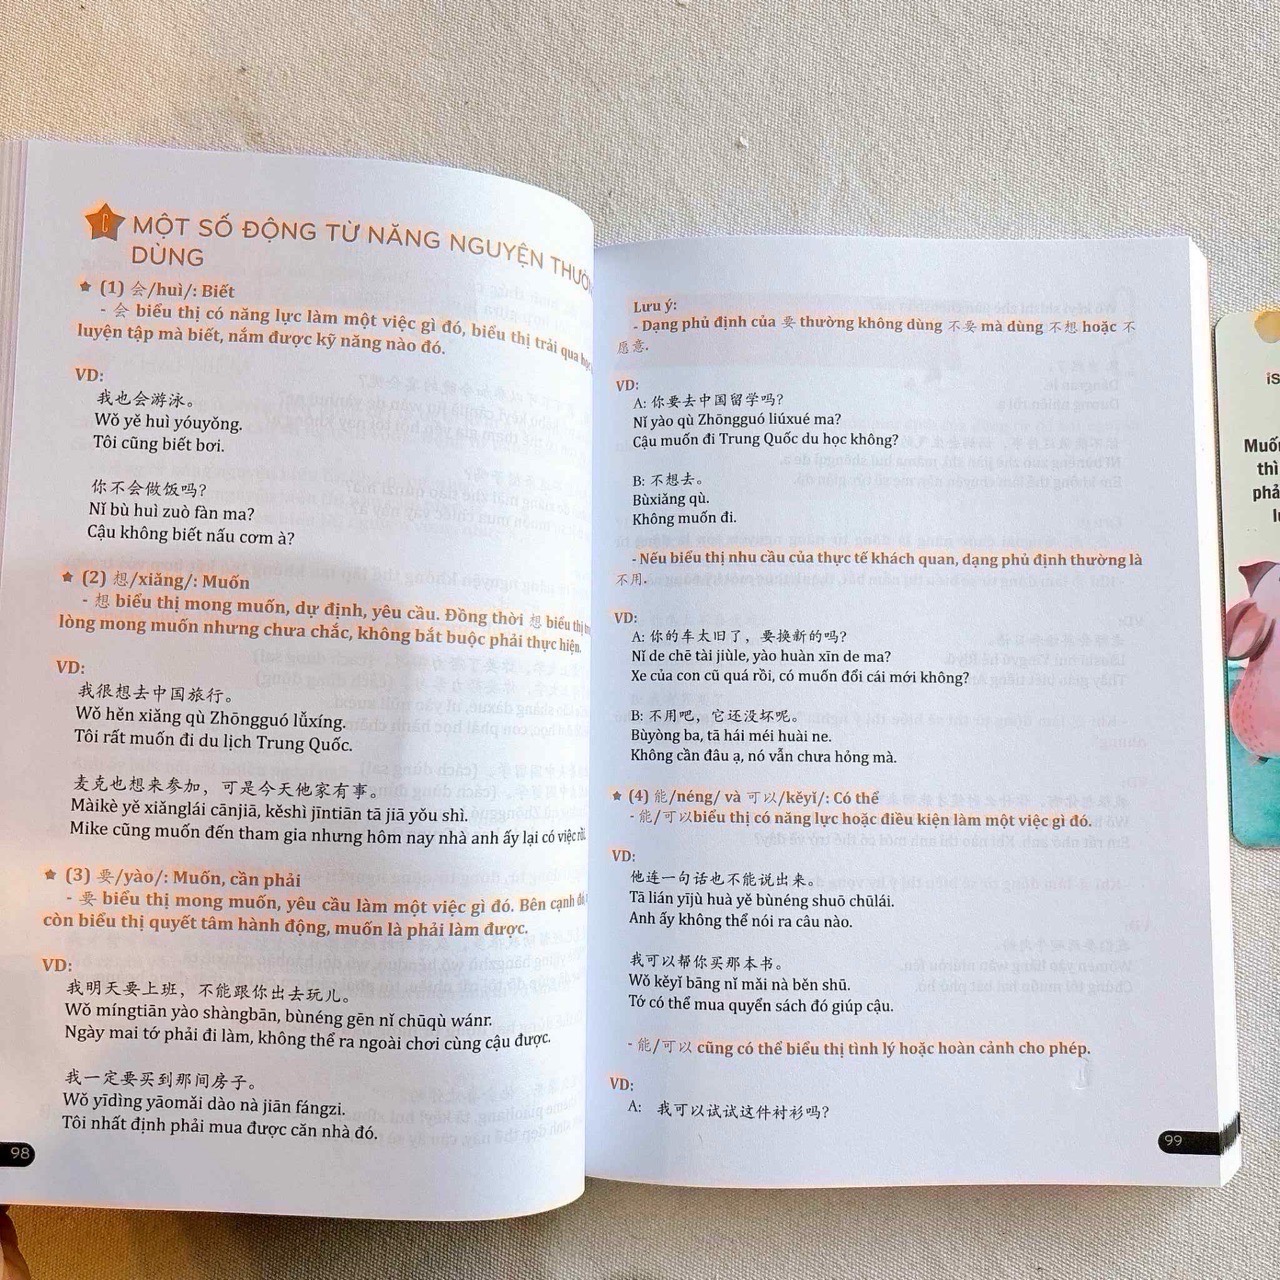 C MỘT SỐ ĐỘNG TỪ NĂNG NGUYỆN
DÙNG
(1) 会/huì/: Biết
- 会 biểu thị có năng lực làm một việc gì đó, biểu thị trải qua
luyện tập mà biết, nắm được kỹ năng nào đó.
VD:
我也会游泳。
Wǒ yě huì yóuyǒng.
Tôi cũng biết bơi.
你不会做饭吗?
Nǐ bù huì zuò fàn ma?
Cậu không biết nấu cơm à?
(2) 想/xiǎng/: Muốn
- 想 biểu thị mong muốn, dự định, yêu cầu. Đồng thời 想 biểu thị
lòng mong muốn nhưng chưa chắc, không bắt buộc phải thực hiện.
VD:
我很想去中国旅行。
Wǒ hěn xiǎng qù Zhōngguó lǚxíng.
Tôi rất muốn đi du lịch Trung Quốc.
麦克也想来参加，可是今天他家有事。
Màikè yě xiǎnglái cānjiā, kěshì jīntiān tā jiā yǒu shì.
Mike cũng muốn đến tham gia nhưng hôm nay nhà anh ấy lại có việc rồi.
(3) 要/yào/: Muốn, cần phải
- 要 biểu thị mong muốn, yêu cầu làm một việc gì đó. Bên cạnh
còn biểu thị quyết tâm hành động, muốn là phải làm được.
VD:
我明天要上班，不能跟你出去玩儿。
Wǒ míngtiān yào shàngbān, bùnéng gēn nǐ chūqù wánr.
Ngày mai tớ phải đi làm, không thể ra ngoài chơi cùng cậu được.
我一定要买到那间房子。
Wǒ yīdìng yāomǎi dào nà jiān fángzi.
Tôi nhất định phải mua được căn nhà đó.
98
Lưu ý:
- Dạng phủ định của 要 thường không dùng 不要 mà dùng 不想 hoặc 不
愿意.
VD:
A: 你要去中国留学吗?
Nǐ yào qù Zhōngguó liúxué ma?
Cậu muốn đi Trung Quốc du học không?
B: 不想去。
Bùxiǎng qù.
Không muốn đi.
- Nếu biểu thị nhu cầu của thực tế khách quan, dạng phủ định thường là
不用.
VD:
A: 你的车太旧了，要换新的吗?
Nǐ de chē tài jiùle, yào huàn xīn de ma?
Xe của con cũ quá rồi, có muốn đổi cái mới không?
B: 不用吧，它还没坏呢。
Bùyòng ba, tā hái méi huài ne.
Không cần đâu ạ, nó vẫn chưa hỏng mà.
(4) 能/néng/ và 可以/kěyǐ/: Có thể
- 能/可以biểu thị có năng lực hoặc điều kiện làm một việc gì đó.
VD:
他连一句话也不能说出来。
Tā lián yījù huà yě bùnéng shuō chūlái.
Anh ấy không thể nói ra câu nào.
我可以帮你买那本书。
Wǒ kěyǐ bāng nǐ mǎi nà běn shū.
Tớ có thể mua quyển sách đó giúp cậu.
- 能/可以 cũng có thể biểu thị tình lý hoặc hoàn cảnh cho phép.
VD:
A: 我可以试试这件衬衫吗?
99
thì